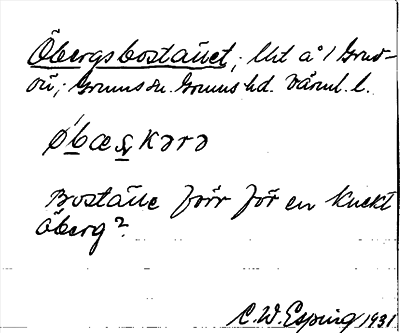 Öbergsbostället; lht å 1 Grud-
ön; Grums sn. Grums hd. Värml. l.
Øbæskərə
Boställe förr för en knekt
Öberg?
C.W. Esping 1931